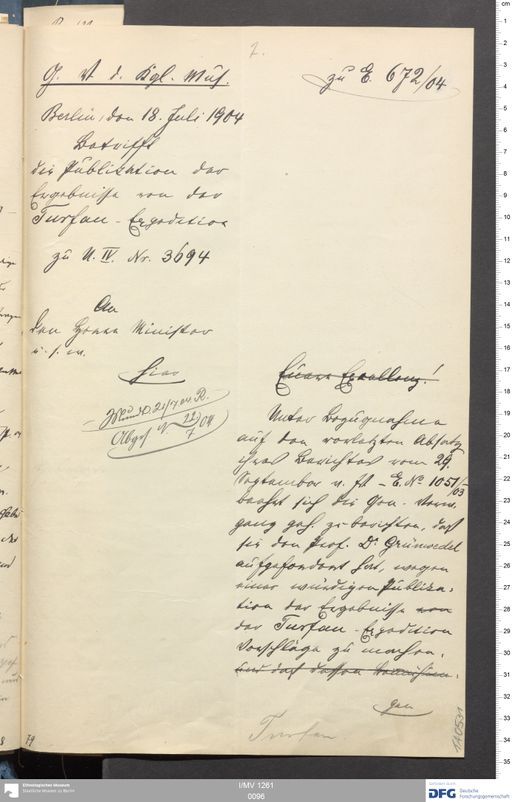 2.
zu E. 672/04
G. V. d. Kgl. Mus.
Berlin, den 18. Juli 1904
Betrifft
die Publikation der
Ergebnisse von der
Turfan-Expedition
zu U. IV. Nr. 3694
An
den Herrn Minister
u. s. w.
hier
21/7.04. R.
Abges 22/7 04
Euere Excellenz!
Unter Bezugnahme
auf den vorletzten Absatz
ihres Berichtes vom 29.
September v. Js – E. No 1051/03
beehrt sich die Gen. Verw.
ganz geh. zu berichten, daß
sie den Prof. Dr. Grünwedel
aufgefordert hat, wegen
einer würdigen Publika-
tion der Ergebnisse von
der Turfan-Expedition
Vorschläge zu machen,
und daß dessen
gen
Turfan.
79
1A0531
Ethnologisches Museum
Staatliche Museen zu Berlin
I/MV 1261
0096
DFG Deutsche
Forschungsgemeinschaft